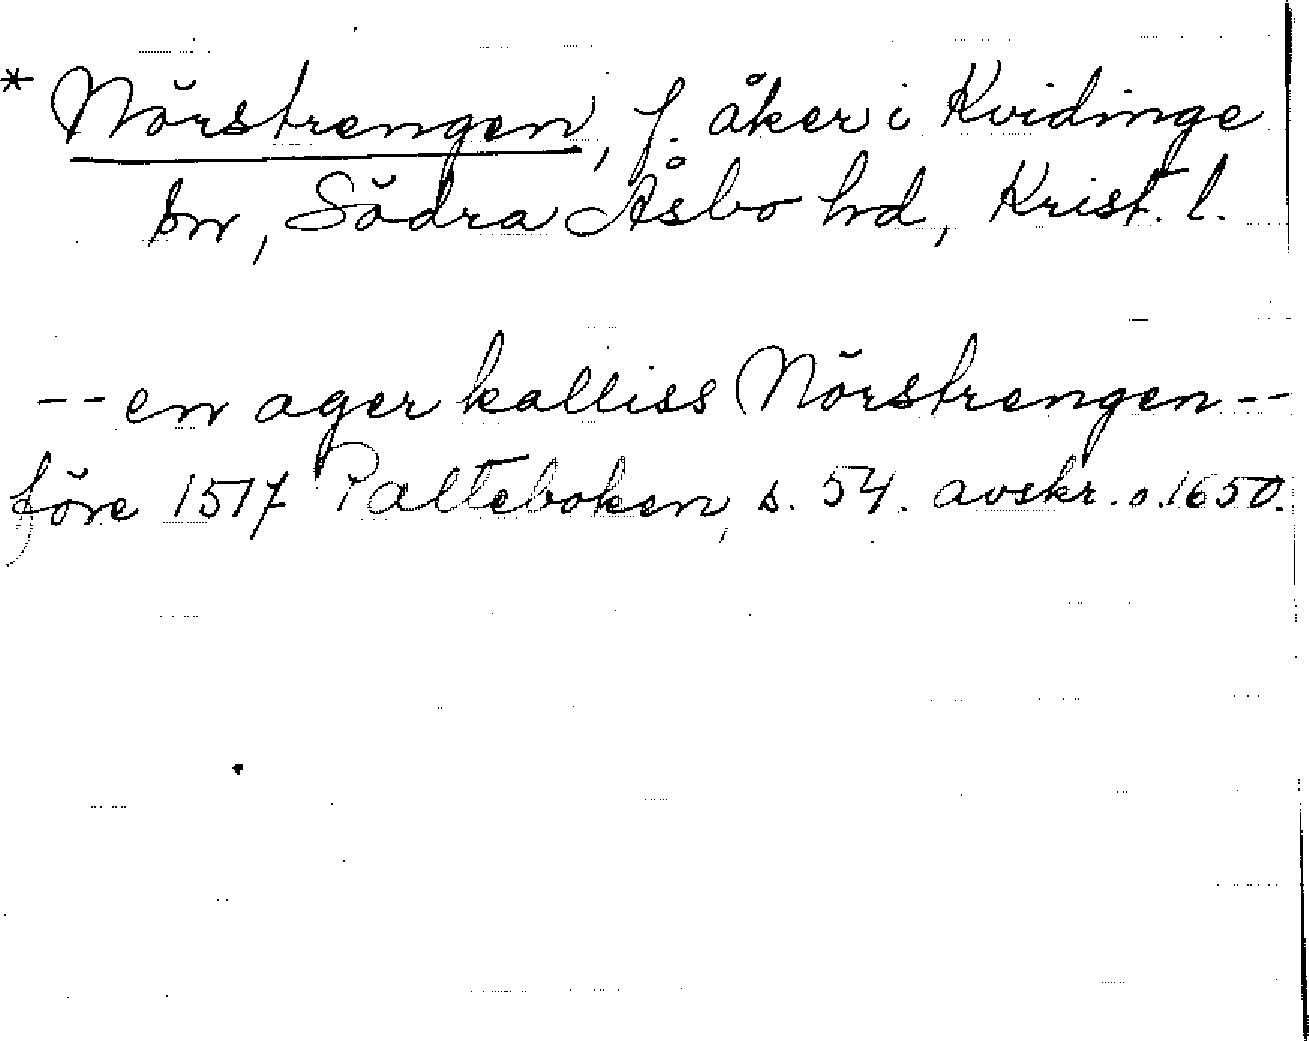 * Nörstrengen, f. åker i Kvidinge
sn, Södra Åsbo hd, Krist. l.
-- en ager kalliss Nörstrengen --
före 1517 Palteboken, s. 54. avskr. o. 1650.